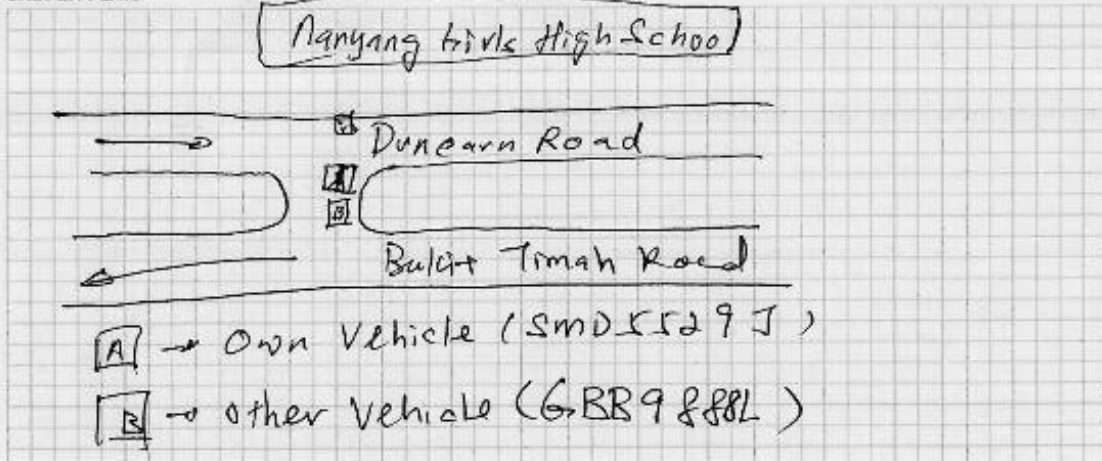 Nanyang Girls High School
Dunearn Road
A
B
Bukit Timah Road
A → Own Vehicle (SMD5529J)
B → Other Vehicle (GBB9888L)